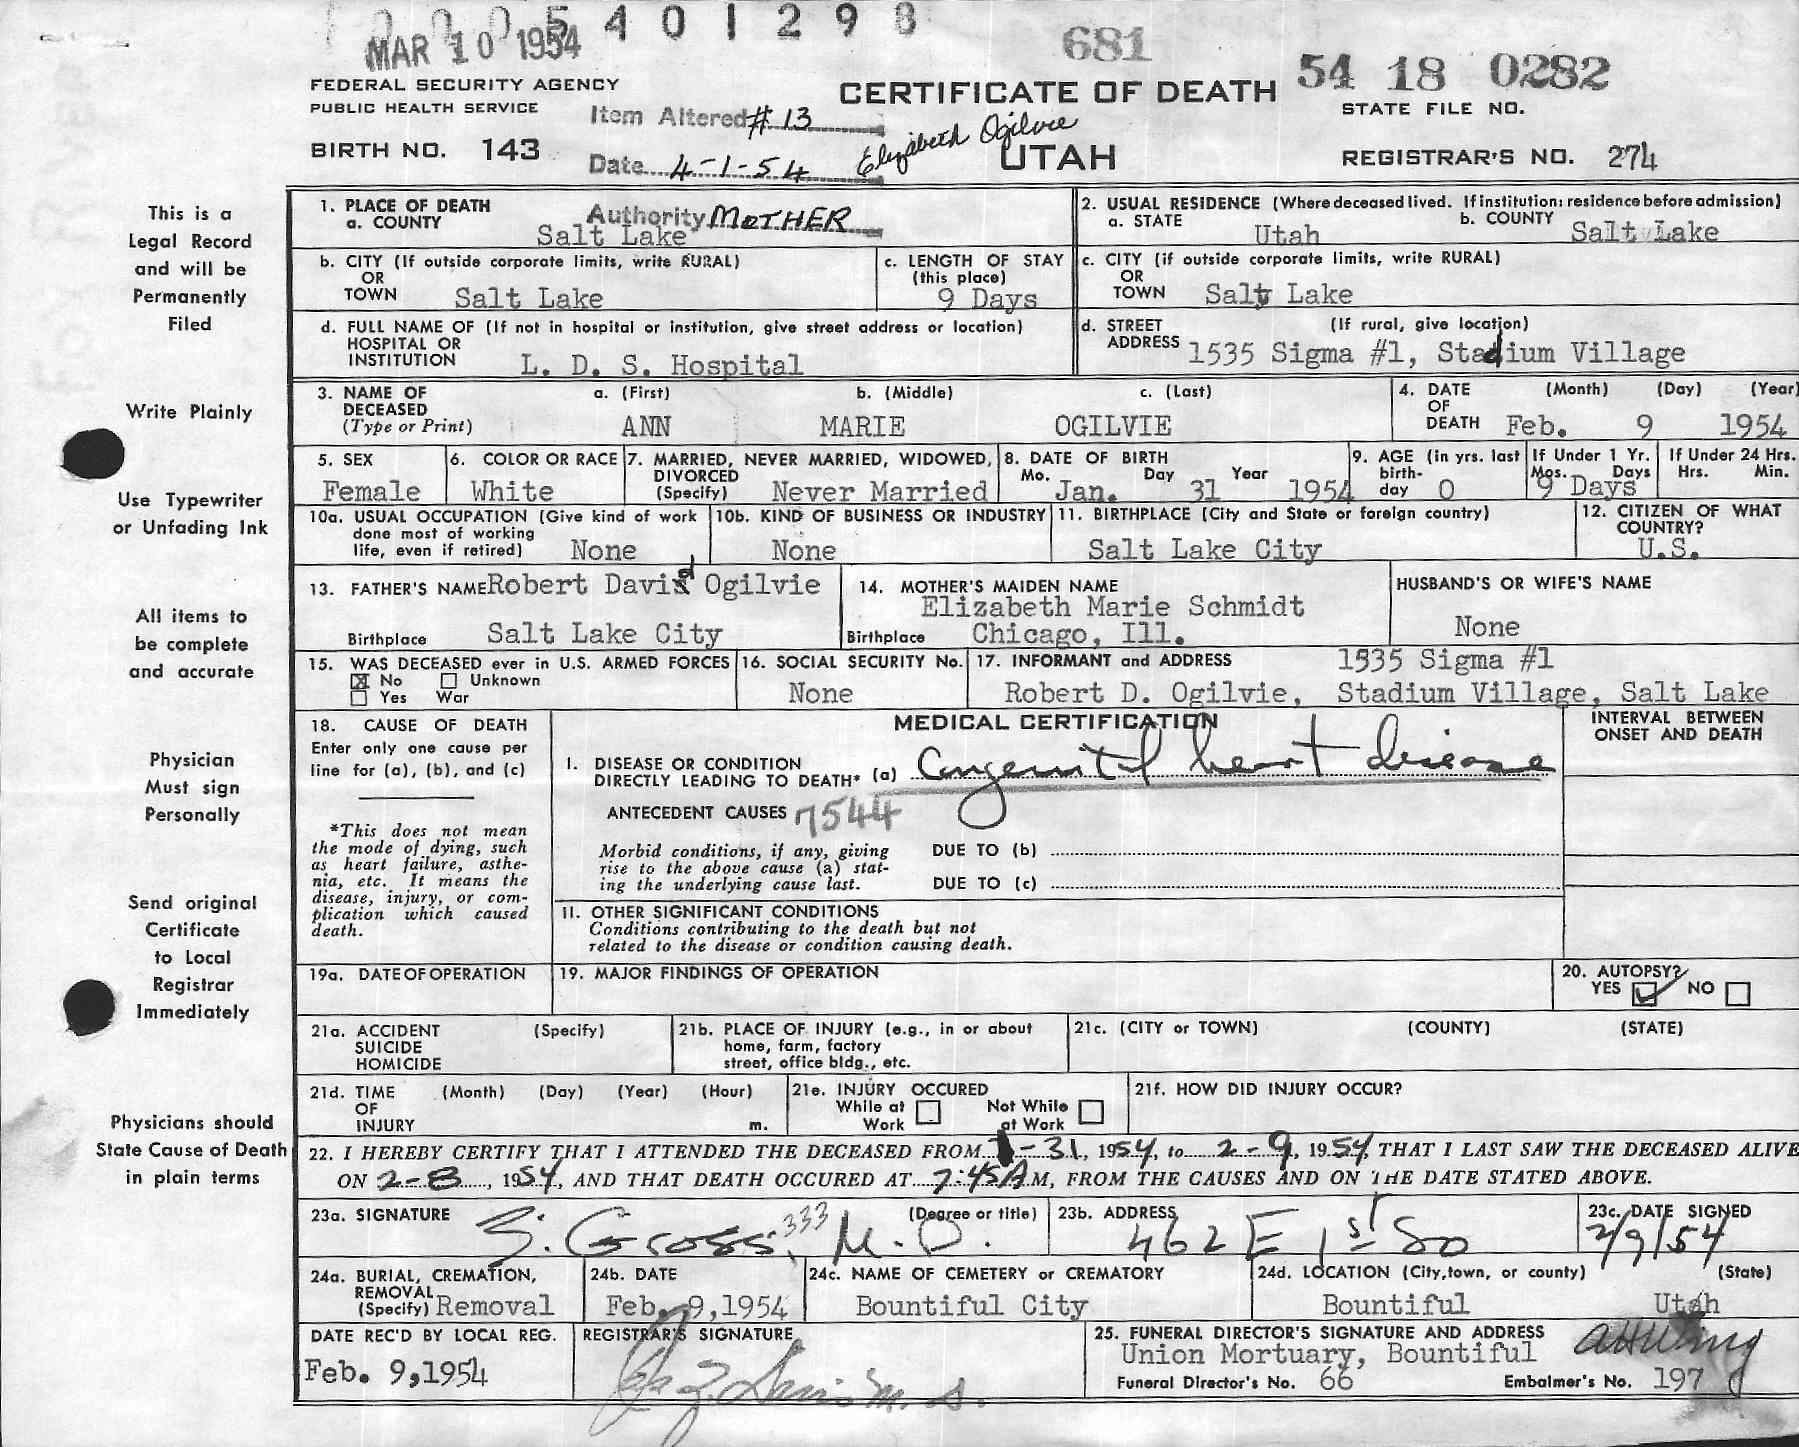 0005401298
MAR 10 1954
681
54 18 0282
FEDERAL SECURITY AGENCY
PUBLIC HEALTH SERVICE
CERTIFICATE OF DEATH
STATE FILE NO.
Item Altered # 13
Elizabeth Ogilvie
BIRTH NO. 143
Date 4-1-54
UTAH
REGISTRAR'S NO. 274
This is a
Legal Record
and will be
Permanently
Filed
Write Plainly
Use Typewriter
or Unfading Ink
All items to
be complete
and accurate
Physician
Must sign
Personally
Send original
Certificate
to Local
Registrar
Immediately
Physicians should
State Cause of Death
in plain terms
1. PLACE OF DEATH
a. COUNTY
Authority MOTHER
Salt Lake
2. USUAL RESIDENCE (Where deceased lived. If institution: residence before admission)
a. STATE Utah b. COUNTY Salt Lake
b. CITY (If outside corporate limits, write RURAL)
OR
TOWN Salt Lake
c. LENGTH OF STAY
(this place)
9 Days
c. CITY (if outside corporate limits, write RURAL)
OR
TOWN Salt Lake
d. FULL NAME OF (If not in hospital or institution, give street address or location)
HOSPITAL OR
INSTITUTION L. D. S. Hospital
d. STREET (If rural, give location)
ADDRESS 1535 Sigma #1, Stadium Village
3. NAME OF a. (First) b. (Middle) c. (Last)
DECEASED
(Type or Print) ANN MARIE OGILVIE
4. DATE (Month) (Day) (Year)
OF
DEATH Feb. 9 1954
5. SEX
Female
6. COLOR OR RACE
White
7. MARRIED, NEVER MARRIED, WIDOWED,
DIVORCED
(Specify) Never Married
8. DATE OF BIRTH
Mo. Day Year
Jan. 31 1954
9. AGE (in yrs. last
birth-
day 0
If Under 1 Yr.
Mos. Days
9 Days
If Under 24 Hrs.
Hrs. Min.
10a. USUAL OCCUPATION (Give kind of work
done most of working
life, even if retired) None
10b. KIND OF BUSINESS OR INDUSTRY
None
11. BIRTHPLACE (City and State or foreign country)
Salt Lake City
12. CITIZEN OF WHAT
COUNTRY?
U.S.
13. FATHER'S NAME Robert David Ogilvie
Birthplace Salt Lake City
14. MOTHER'S MAIDEN NAME
Elizabeth Marie Schmidt
Birthplace Chicago, Ill.
HUSBAND'S OR WIFE'S NAME
None
15. WAS DECEASED ever in U.S. ARMED FORCES
☒ No ☐ Unknown
☐ Yes War
16. SOCIAL SECURITY No.
None
17. INFORMANT and ADDRESS 1535 Sigma #1
Robert D. Ogilvie, Stadium Village, Salt Lake
18. CAUSE OF DEATH
Enter only one cause per
line for (a), (b), and (c)
*This does not mean
the mode of dying, such
as heart failure, asthe-
nia, etc. It means the
disease, injury, or com-
plication which caused
death.
MEDICAL CERTIFICATION
INTERVAL BETWEEN
ONSET AND DEATH
I. DISEASE OR CONDITION
DIRECTLY LEADING TO DEATH* (a) Congenital heart disease
ANTECEDENT CAUSES 7544
Morbid conditions, if any, giving
rise to the above cause (a) stat-
ing the underlying cause last.
DUE TO (b)
DUE TO (c)
II. OTHER SIGNIFICANT CONDITIONS
Conditions contributing to the death but not
related to the disease or condition causing death.
19a. DATE OF OPERATION
19. MAJOR FINDINGS OF OPERATION
20. AUTOPSY?
YES ☑ NO ☐
21a. ACCIDENT (Specify)
SUICIDE
HOMICIDE
21b. PLACE OF INJURY (e.g., in or about
home, farm, factory
street, office bldg., etc.
21c. (CITY or TOWN) (COUNTY) (STATE)
21d. TIME (Month) (Day) (Year) (Hour)
OF
INJURY m.
21e. INJURY OCCURED
While at Work ☐ Not While at Work ☐
21f. HOW DID INJURY OCCUR?
22. I HEREBY CERTIFY THAT I ATTENDED THE DECEASED FROM 1-31, 1954, to 2-9, 1954, THAT I LAST SAW THE DECEASED ALIVE
ON 2-8, 1954, AND THAT DEATH OCCURED AT 7:45 A M, FROM THE CAUSES AND ON THE DATE STATED ABOVE.
23a. SIGNATURE (Degree or title)
S. Gross, 333 M.D.
23b. ADDRESS
462 E 1st So
23c. DATE SIGNED
2/9/54
24a. BURIAL, CREMATION,
REMOVAL
(Specify) Removal
24b. DATE
Feb. 9,1954
24c. NAME OF CEMETERY or CREMATORY
Bountiful City
24d. LOCATION (City, town, or county) (State)
Bountiful Utah
DATE REC'D BY LOCAL REG.
Feb. 9,1954
REGISTRAR'S SIGNATURE
25. FUNERAL DIRECTOR'S SIGNATURE AND ADDRESS
Union Mortuary, Bountiful
Funeral Director's No. 66 Embalmer's No. 197